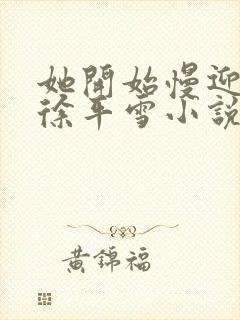 她開始慢迎
徐平雪小說
黃錦福